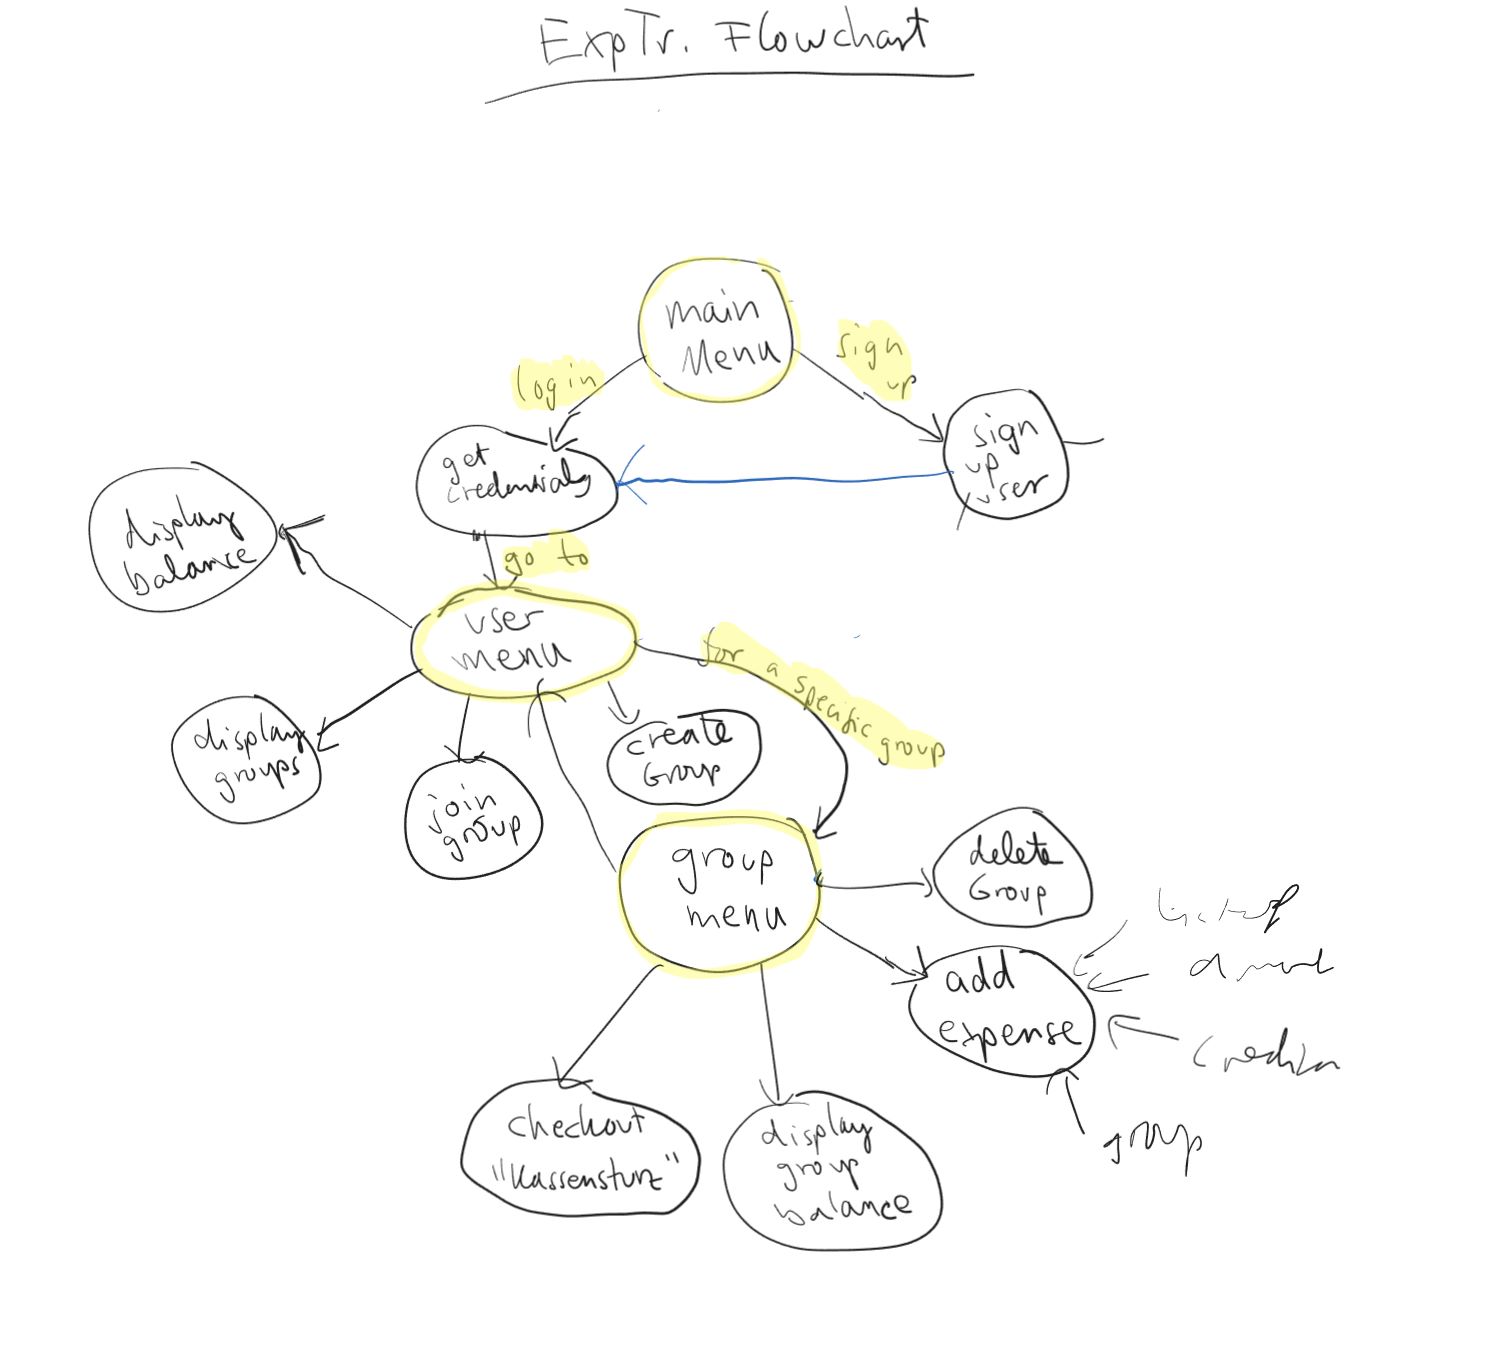 ExpTr. Flowchart
main
Menu
login
sign
up
get
credentials
sign
up
user
display
balance
go to
user
menu
for a specific group
display
groups
join
group
create
Group
group
menu
delete
Group
add
expense
amount
group
checkout
"Kassensturz"
display
group
balance